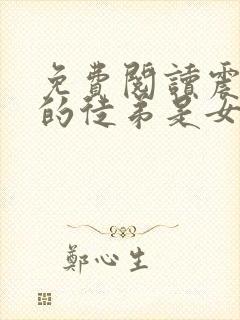 免費閱讀震
的徒弟是女
鄭心生